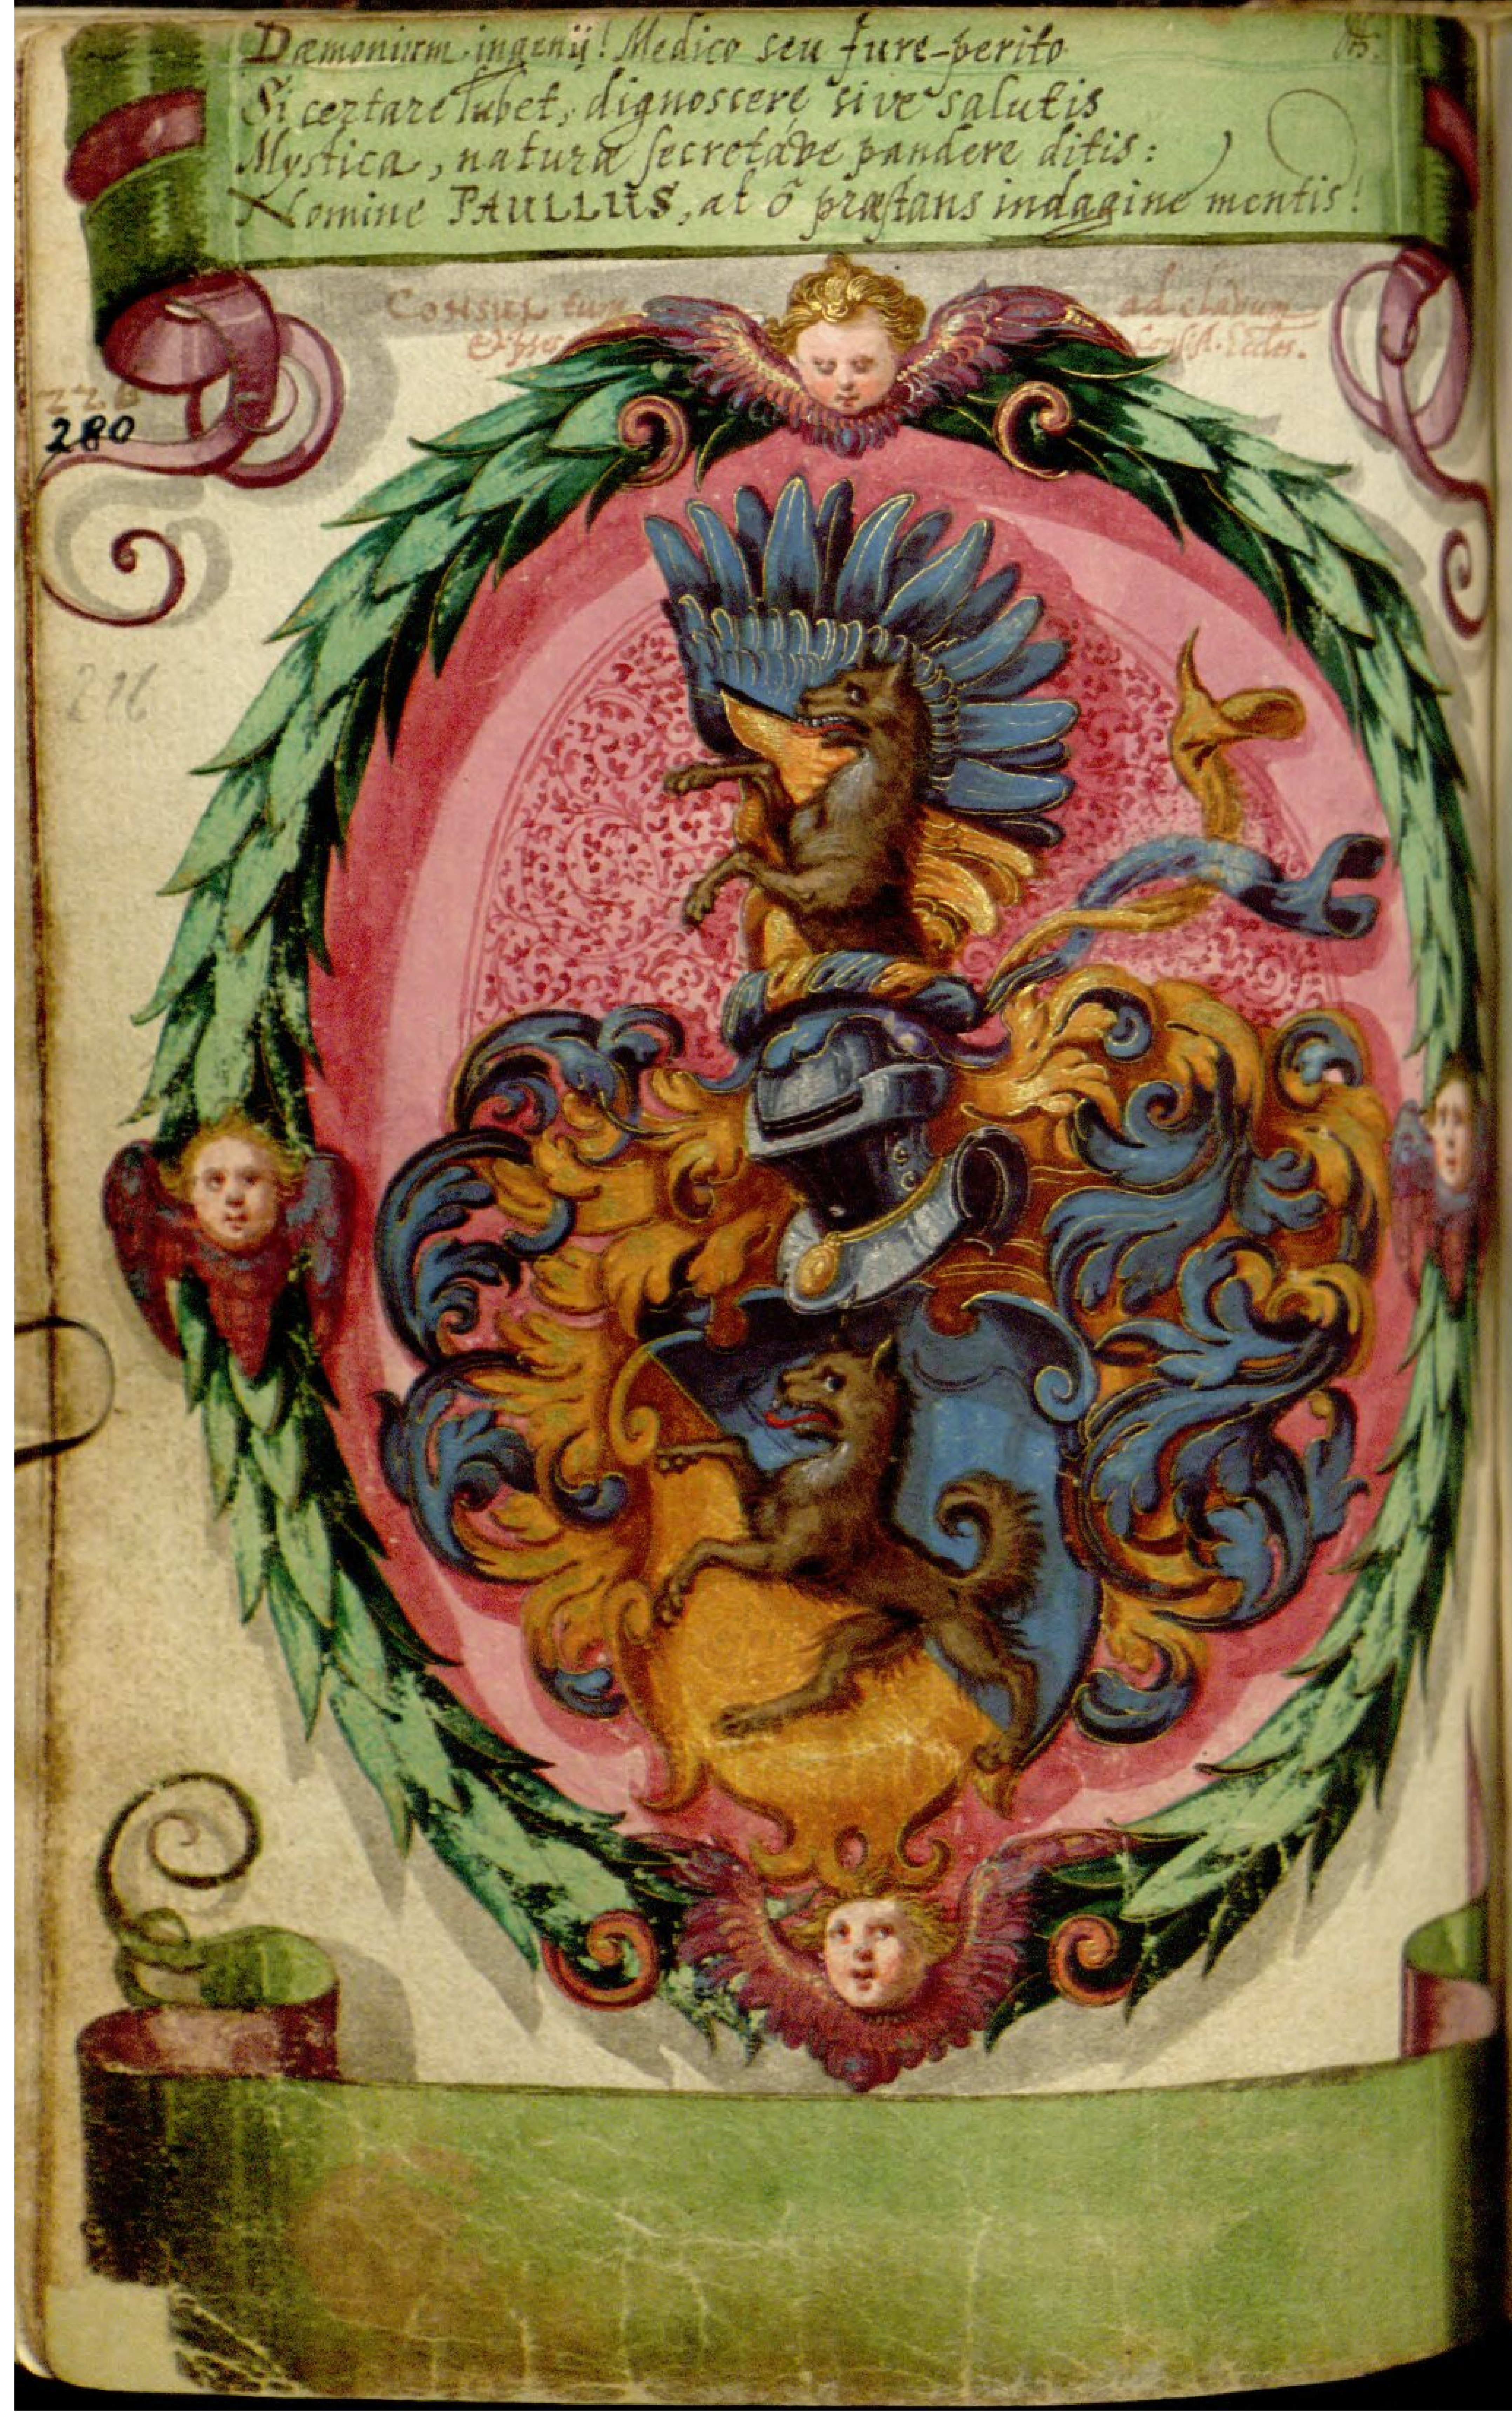 Dæmonium ingenij! Medico seu Jure-perito
Si certare lubet, dignoscere sive salutis
Mystica, naturæ secretáve pandere ditis:
Nomine PAULLUS, at ô præstans indagine mentis!
Consul ad clavum
280
216